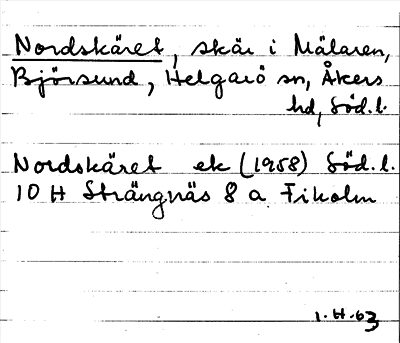 Nordskäret, skär i Mälaren,
Björsund, Helgarö sn, Åkers
hd, Söd.l.
Nordskäret ek (1958) Söd.l.
10 H Strängnäs 8 a Fikolm
1.H.63